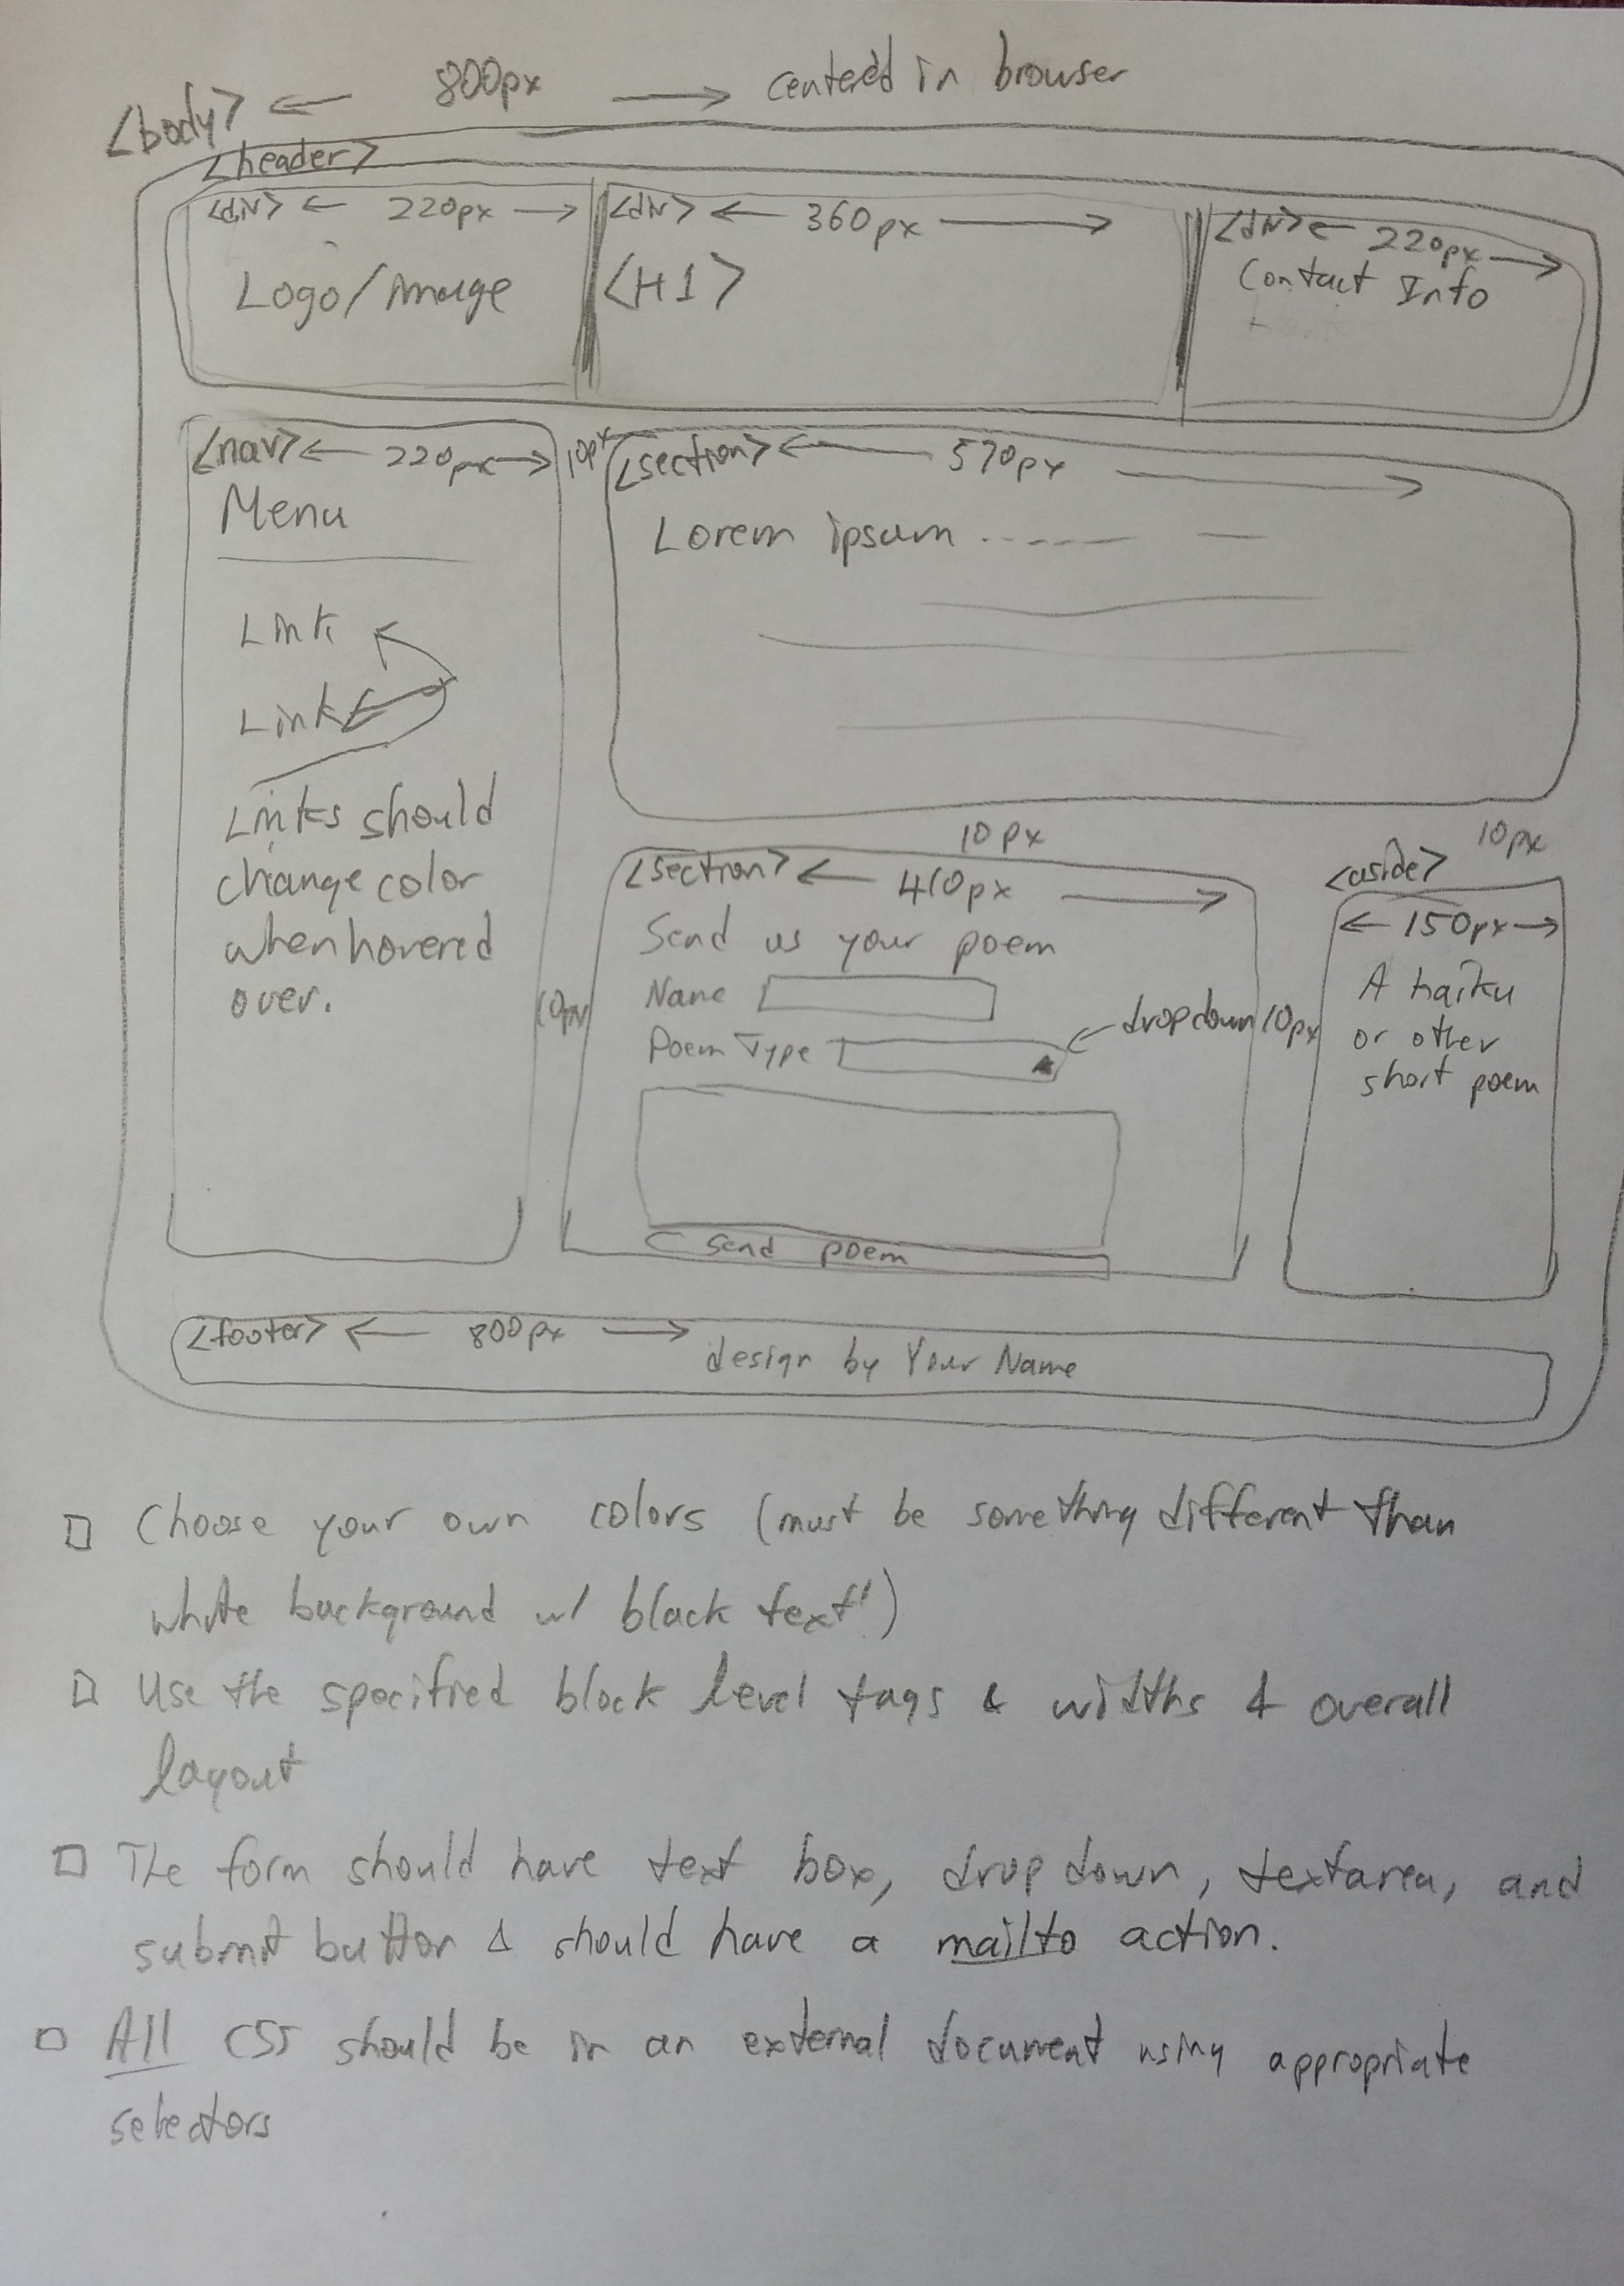 800px centered in browser
<body>
<header>
<div> 220px <div> 360px <div> 220px
Logo/Image <H1> Contact Info
<nav> 220px 10px <section> 570px
Menu
Lorem ipsum
Link
Link
Links should
change color
when hovered
over.
10px 10px
<section> 410px <aside>
150px
Send us your poem
Name
A haiku
10px dropdown 10px
Poem Type
or other
short poem
Send poem
<footer> 800px design by Your Name
Choose your own colors (must be something different than
white background w/ black text!)
Use the specified block level tags & widths & overall
layout
The form should have text box, drop down, textarea, and
submit button & should have a mailto action.
All CSS should be in an external document using appropriate
selectors